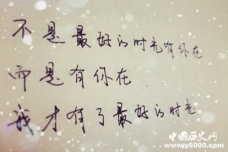 不是最好的时光有你在
而是有你在
我才有了最好的时光
中国历史网
www.y5000.com